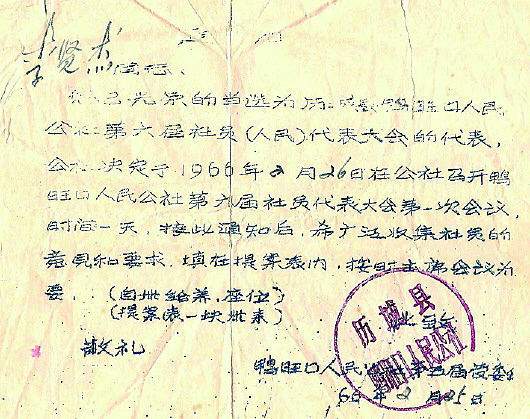 通知
李贤杰同志:
你已光荣的当选为历城县鸭旺口人民
公社第六届社员(人民)代表大会的代表,
公社决定于1966年2月26日在公社召开鸭
旺口人民公社第六届社员代表大会第一次会议,
时间一天,接此通知后,希广泛收集社员的
意见和要求,填在提案表内,按时出席会议为
要。(自带给养、座位)
(提案表一块带来)
此致
敬礼
鸭旺口人民公社第五届管委
66年2月25日
历城县
人民公社